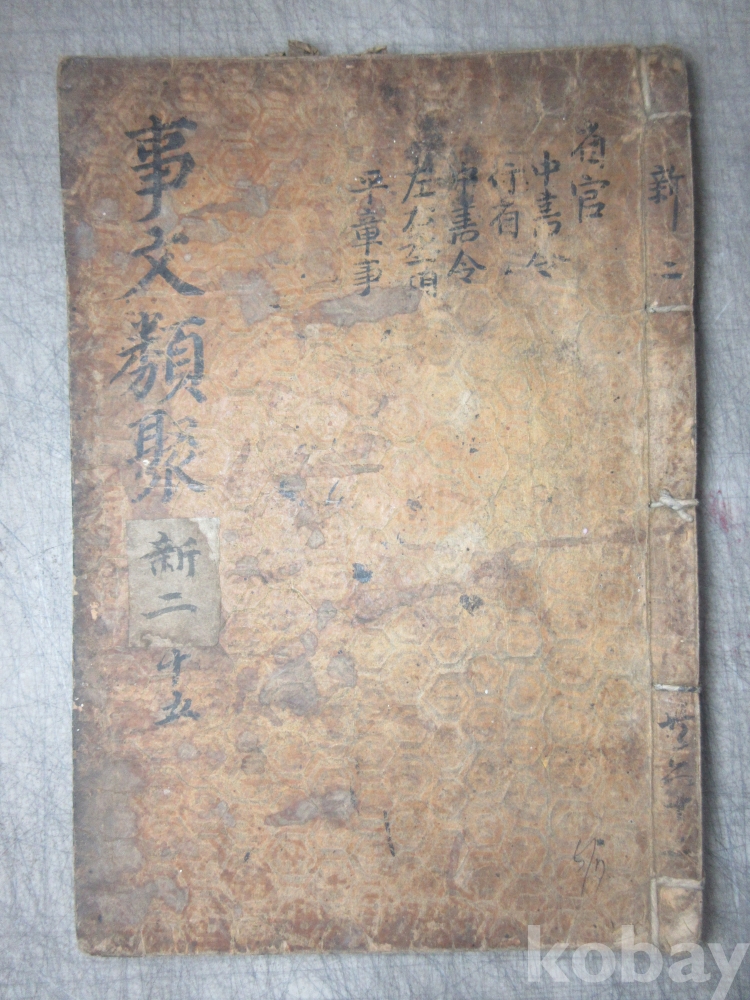 新二
省官
中書令
行省
中書令
左右丞相
平章事
事文類聚
新二
十五
kobay